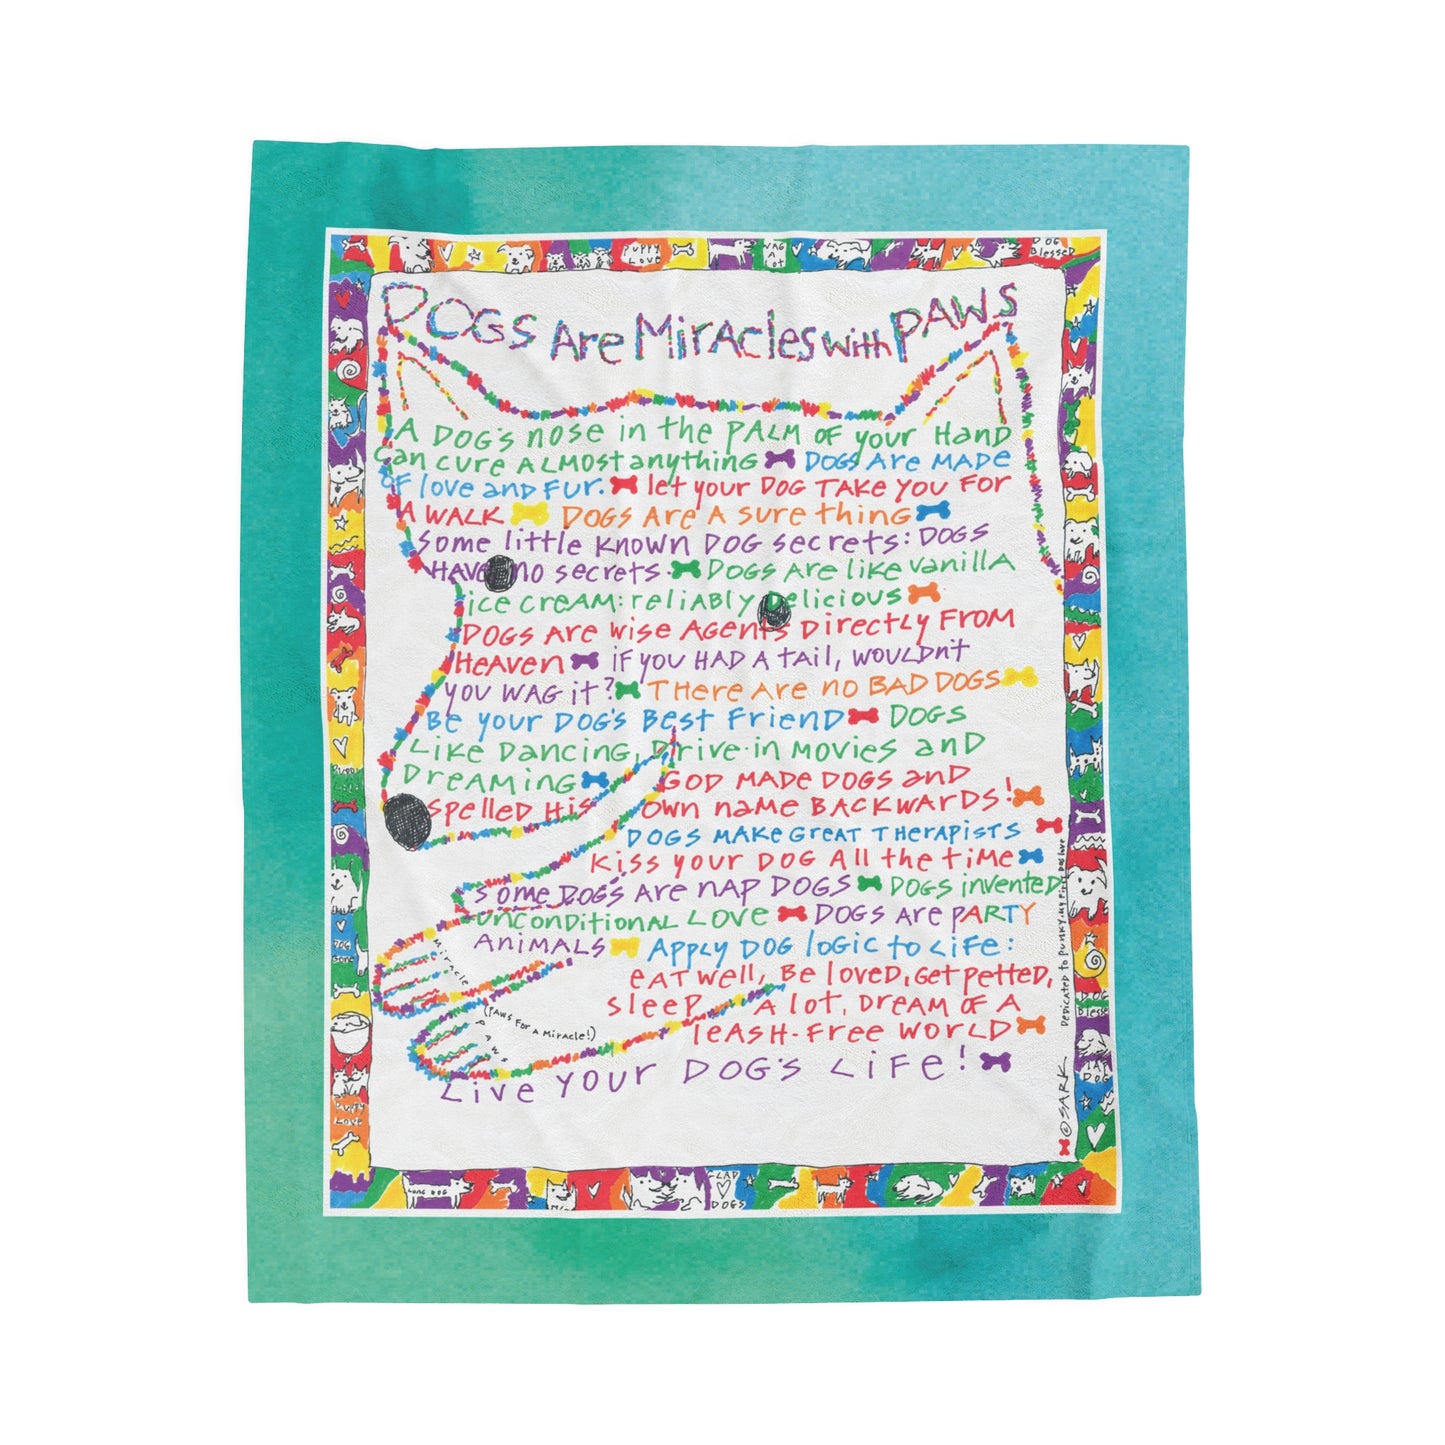 PUPPY LOVE
WAG A lot
DOG Blessed
DOGS Are Miracles with PAWS
A DOG'S nose in the PALM OF your Hand
Can cure ALMOST anything DOGS Are MADE
OF love and FUR. let your DOG TAKE YOU FOR
A WALK DOGS Are A sure thing
Some little known DOG secrets: DOGS
HAVE no secrets. DOGS Are like vanilla
ice cream: reliABly Delicious
DOGS Are wise Agents Directly FROM
HEAVEN if you HAD A tail, WOULDn't
you WAG it? THere Are no BAD DOGS
Be your DOG'S Best Friend DOGS
Like Dancing, Drive-in movies and
Dreaming GOD MADE DOGS and
Spelled His own name BACKWARDS!
DOGS MAKE Great THerapists
Kiss your DOG All the time
Some DOGS Are nap DOGS DOGS invented
unconditional Love DOGS Are PARTY
Animals Apply DOG logic to Life:
eat well, Be loved, Get petted,
sleep A lot, Dream of A
leash-free world
Live your DOG'S Life!
Miracle
(PAWS For A Miracle!)
PAWS
Dedicated to Punky, my First Dog love
©SARK
DOG Blessed
PUPPY Love
LONG DOG
GLAD DOGS